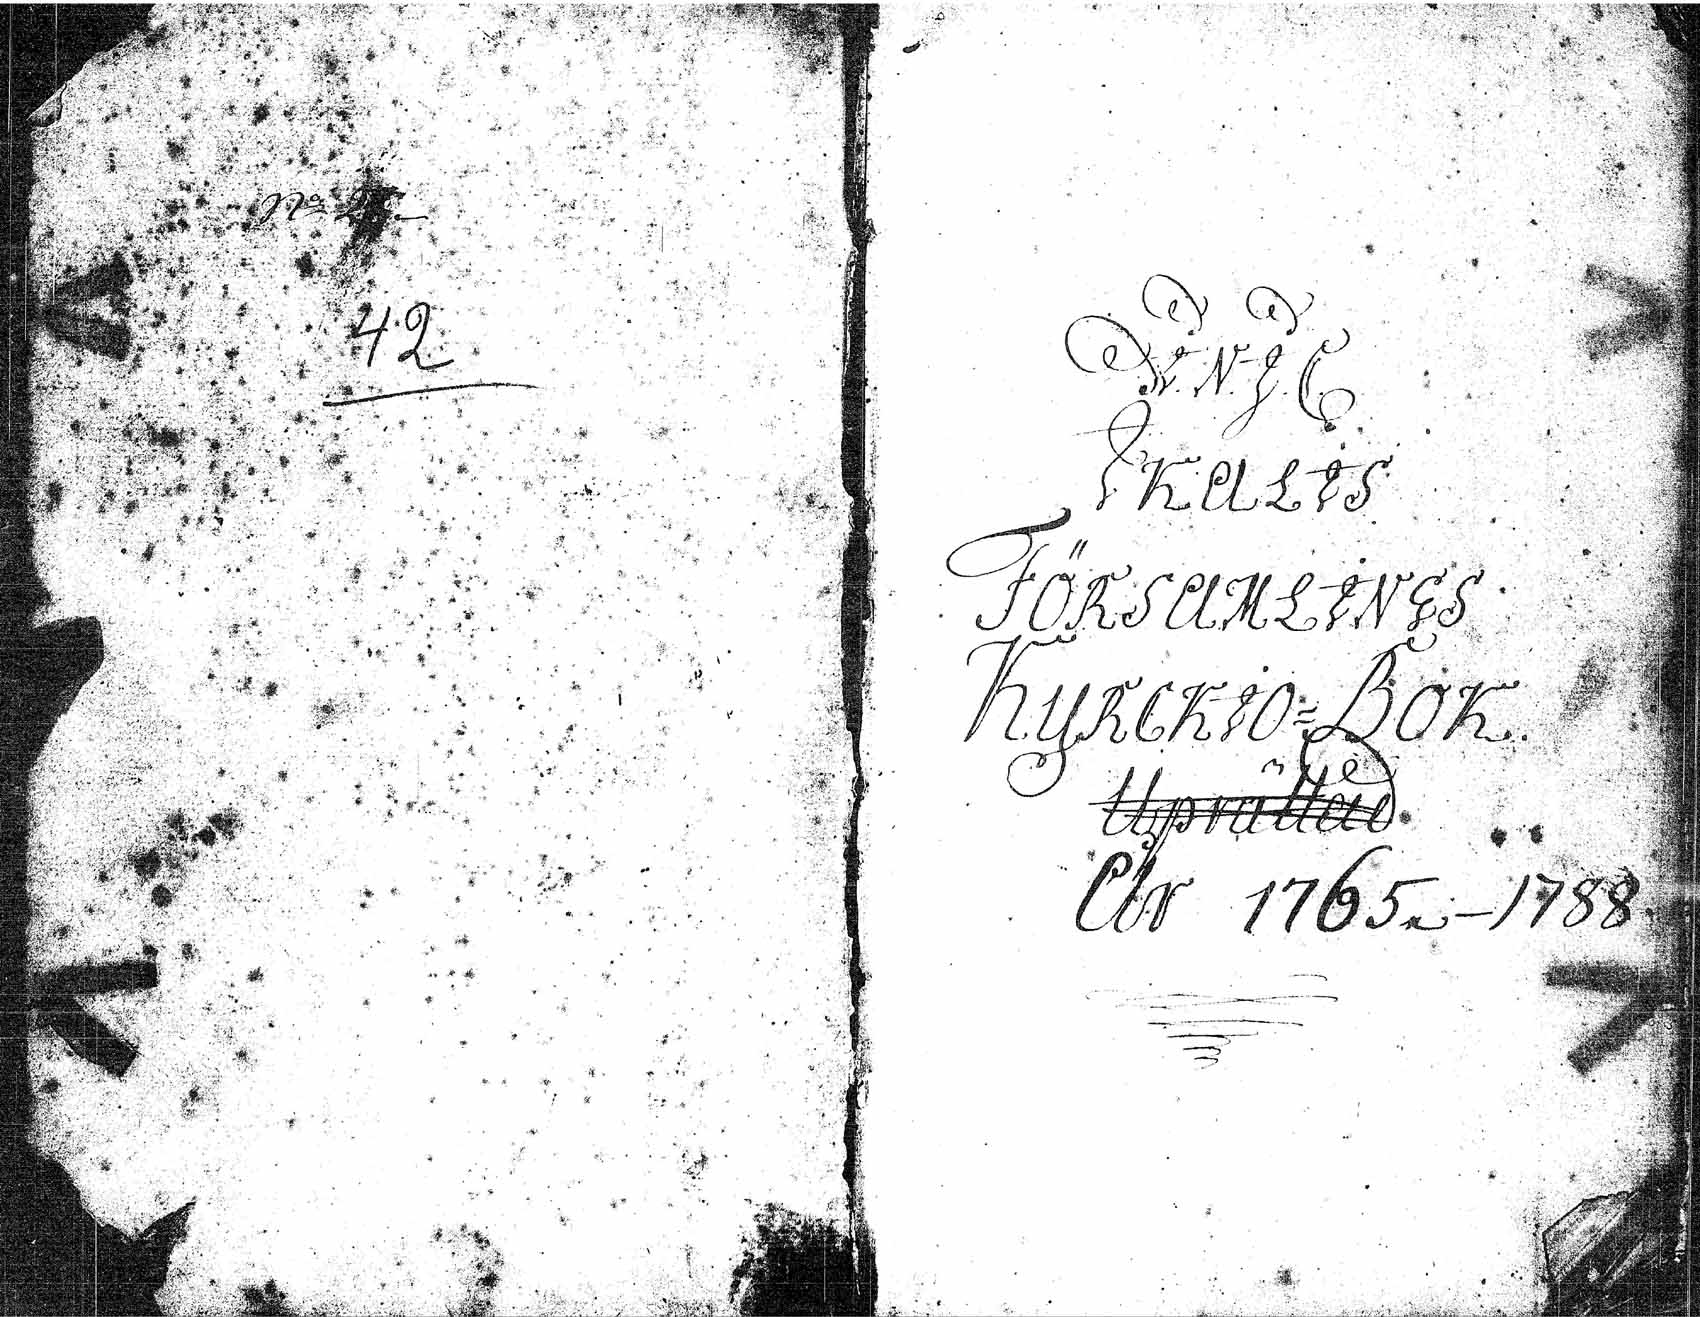 No
42
I. N. J. C
IKALIS
FÖRSAMLINGS
KYRCKIO=BOK.
Uprättad
År 1765. – 1788.